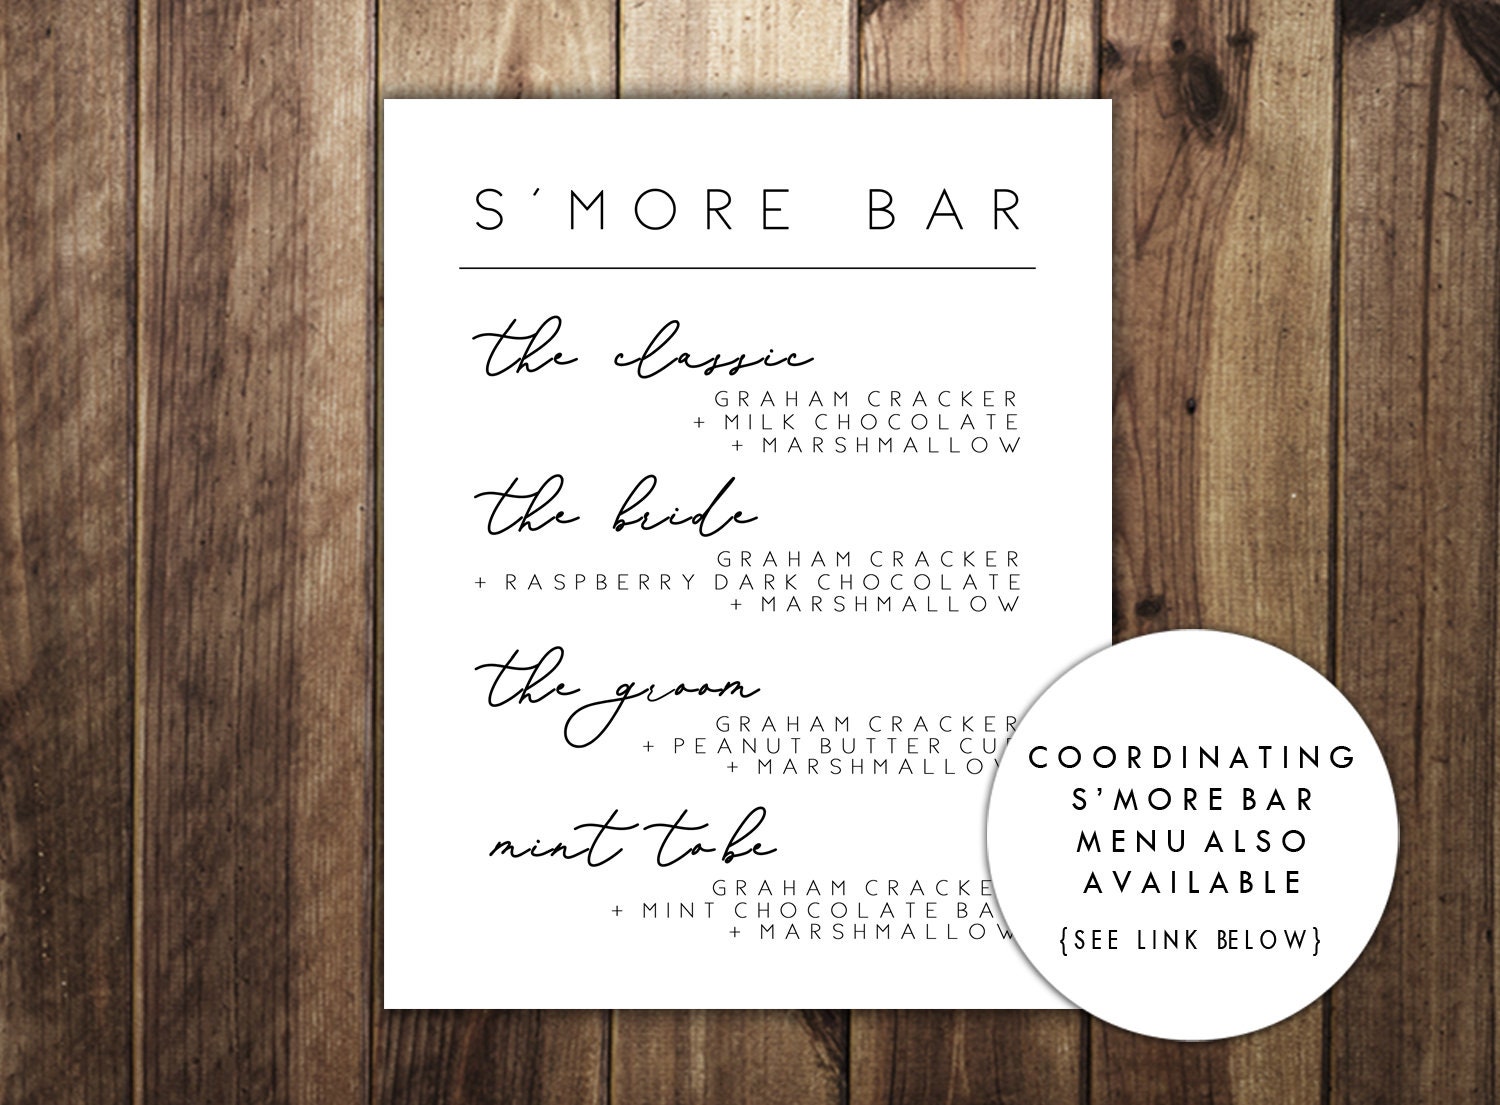 S'MORE BAR
the classic
GRAHAM CRACKER
+ MILK CHOCOLATE
+ MARSHMALLOW
the bride
GRAHAM CRACKER
+ RASPBERRY DARK CHOCOLATE
+ MARSHMALLOW
the groom
GRAHAM CRACKER
+ PEANUT BUTTER CUP
+ MARSHMALLOW
mint to be
GRAHAM CRACKER
+ MINT CHOCOLATE BAR
+ MARSHMALLOW
COORDINATING
S'MORE BAR
MENU ALSO
AVAILABLE
{SEE LINK BELOW}